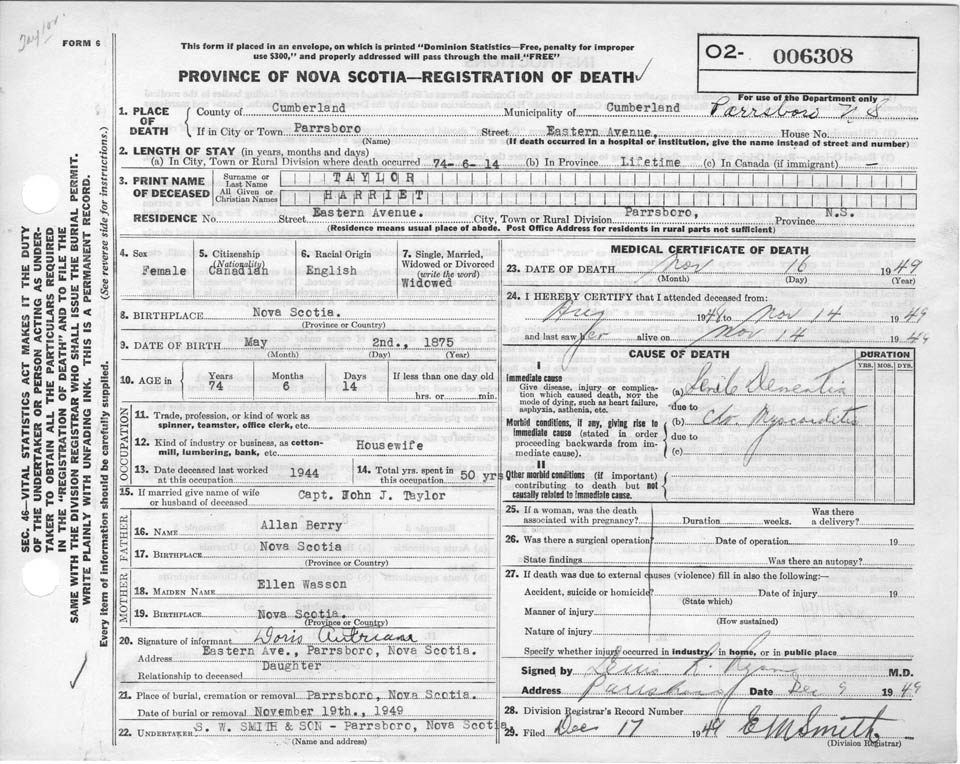 Taylor
FORM 6
This form if placed in an envelope, on which is printed "Dominion Statistics—Free, penalty for improper
use $300," and properly addressed will pass through the mail "FREE"
PROVINCE OF NOVA SCOTIA—REGISTRATION OF DEATH ✓
O2- 006308
For use of the Department only
Parrsboro N S
1. PLACE OF DEATH
County of Cumberland Municipality of Cumberland
If in City or Town Parrsboro Street Eastern Avenue, House No.
(Name) (If death occurred in a hospital or institution, give the name instead of street and number)
2. LENGTH OF STAY (in years, months and days)
(a) In City, Town or Rural Division where death occurred 74-6-14 (b) In Province Lifetime (c) In Canada (if immigrant) —
3. PRINT NAME OF DECEASED
Surname or Last Name TAYLOR
All Given or Christian Names HARRIET
RESIDENCE No. Street Eastern Avenue. City, Town or Rural Division Parrsboro, Province N.S.
(Residence means usual place of abode. Post Office Address for residents in rural parts not sufficient)
4. Sex
Female
5. Citizenship
(Nationality)
Canadian
6. Racial Origin
English
7. Single, Married,
Widowed or Divorced
(write the word)
Widowed
8. BIRTHPLACE Nova Scotia.
(Province or Country)
9. DATE OF BIRTH May 2nd., 1875
(Month) (Day) (Year)
10. AGE in
Years Months Days If less than one day old
74 6 14 hrs. or min.
OCCUPATION
11. Trade, profession, or kind of work as
spinner, teamster, office clerk, etc.
12. Kind of industry or business, as cotton-
mill, lumbering, bank, etc. Housewife
13. Date deceased last worked
at this occupation 1944
14. Total yrs. spent in
this occupation 50 yrs
15. If married give name of wife
or husband of deceased Capt. John J. Taylor
FATHER
16. NAME Allan Berry
17. BIRTHPLACE Nova Scotia
(Province or Country)
MOTHER
18. MAIDEN NAME Ellen Wasson
19. BIRTHPLACE Nova Scotia.
(Province or Country)
20. Signature of informant Doris
Address Eastern Ave., Parrsboro, Nova Scotia.
Relationship to deceased Daughter
21. Place of burial, cremation or removal Parrsboro, Nova Scotia.
Date of burial or removal November 19th., 1949
22. UNDERTAKER S. W. SMITH & SON - Parrsboro, Nova Scotia
(Name and address)
MEDICAL CERTIFICATE OF DEATH
23. DATE OF DEATH Nov 16 1949
(Month) (Day) (Year)
24. I HEREBY CERTIFY that I attended deceased from:
Aug 1948 to Nov 14 1949
and last saw her alive on Nov 14 1949
CAUSE OF DEATH
DURATION
YRS. MOS. DYS.
I
Immediate cause
Give disease, injury or complica-
tion which caused death, NOT the
mode of dying, such as heart failure,
asphyxia, asthenia, etc.
(a) Senile Dementia
due to
Morbid conditions, if any, giving rise to
immediate cause (stated in order
proceeding backwards from im-
mediate cause).
(b) Chr. Myocarditis
due to
(c)
II
Other morbid conditions (if important)
contributing to death but not
causally related to immediate cause.
25. If a woman, was the death
associated with pregnancy? Duration weeks. Was there a delivery?
26. Was there a surgical operation? Date of operation 19
State findings Was there an autopsy?
27. If death was due to external causes (violence) fill in also the following:—
Accident, suicide or homicide? Date of injury 19
(State which)
Manner of injury
(How sustained)
Nature of injury
Specify whether injury occurred in industry, in home, or in public place
Signed by M.D.
Address Parrsboro Date Dec 9 1949
28. Division Registrar's Record Number
29. Filed Dec 17 1949 E M Smith
(Division Registrar)
SEC. 46—VITAL STATISTICS ACT MAKES IT THE DUTY
OF THE UNDERTAKER OR PERSON ACTING AS UNDER-
TAKER TO OBTAIN ALL THE PARTICULARS REQUIRED
IN THE "REGISTRATION OF DEATH" AND TO FILE THE
SAME WITH THE DIVISION REGISTRAR WHO SHALL ISSUE THE BURIAL PERMIT.
WRITE PLAINLY WITH UNFADING INK. THIS IS A PERMANENT RECORD.
Every item of information should be carefully supplied. (See reverse side for instructions.)